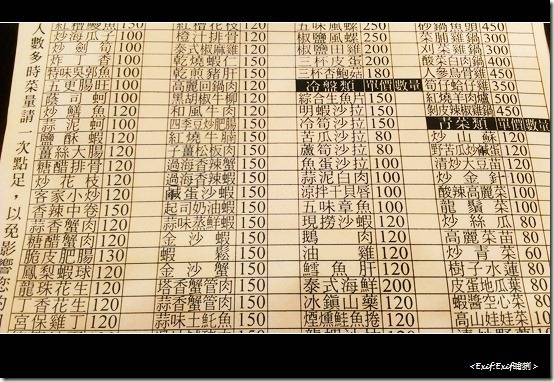 人數多時菜量請一次點足,以免影響您的用
紅糟鰻魚 150
炒海瓜子 100
炒劍筍 100
炸丁香 100
特味吳郭魚 100
五更腸旺 100
蔭司蚵 100
炒鱔魚 100
蒜泥蚵 100
鹽酥蝦 120
薑絲大腸 120
糖醋排骨 120
炒花枝 120
客家小炒 120
香辣中卷 150
蒜香蟹肉 120
糖醋蟹肉 120
脆皮肥腸 130
鳳梨蝦球 120
龍珠花生 120
丁香花生 120
宮保雞丁 120
紅糟花枝 120
橙汁排骨 120
泰式椒麻雞 120
乾燒蝦仁 150
乾煎豬肝 150
高麗回鍋肉 120
黑胡椒牛柳 120
和風牛肉 150
四季豆炒肥腸 150
紅燒牛腩 150
子薑松板肉 150
過海香辣蟹 150
過海香辣蝦 150
鹹蛋沙蝦 150
起司奶油蝦 150
蒜味蒸鮮蝦 150
金沙蝦 150
蝦鬆 150
金沙蟹 150
塔香蟹管肉 150
蒜香蟹管肉 150
蒜味土魠魚 150
五味風螺 250
椒鹽風螺 250
椒鹽田雞 200
三杯皮蛋 200
三杯杏鮑菇 180
冷盤類 單價 數量
綜合生魚片 150
明蝦沙拉 150
冷筍沙拉 150
苦瓜沙拉 80
蘆筍沙拉 80
魚蛋沙拉 100
蒜泥白肉 100
涼拌干貝唇 100
五味章魚 100
現撈沙蝦 120
鵝肉 120
油雞 120
鱈魚肝 120
泰式海鮮 200
冰鎮山藥 120
煙燻鮭魚捲 120
砂鍋魚頭 450
菜脯雞 400
刈菜雞 400
酸菜白肉鍋 400
人參烏骨雞 450
筍仔蛤仔雞 350
紅燒羊肉爐 500
鼓辣椒雞鍋 450
青菜類 單價 數量
炒酥 80
野苦瓜炒鹹蛋 120
清炒大豆苗 120
炒金針 100
酸辣高麗菜 100
龍鬚菜 100
炒絲瓜 80
高麗菜苗 80
炒青菜 60
樹子水蓮 80
皮蛋地瓜葉 80
蝦醬空心菜 80
高山娃娃菜 100
<Exif:Exif曖唎>